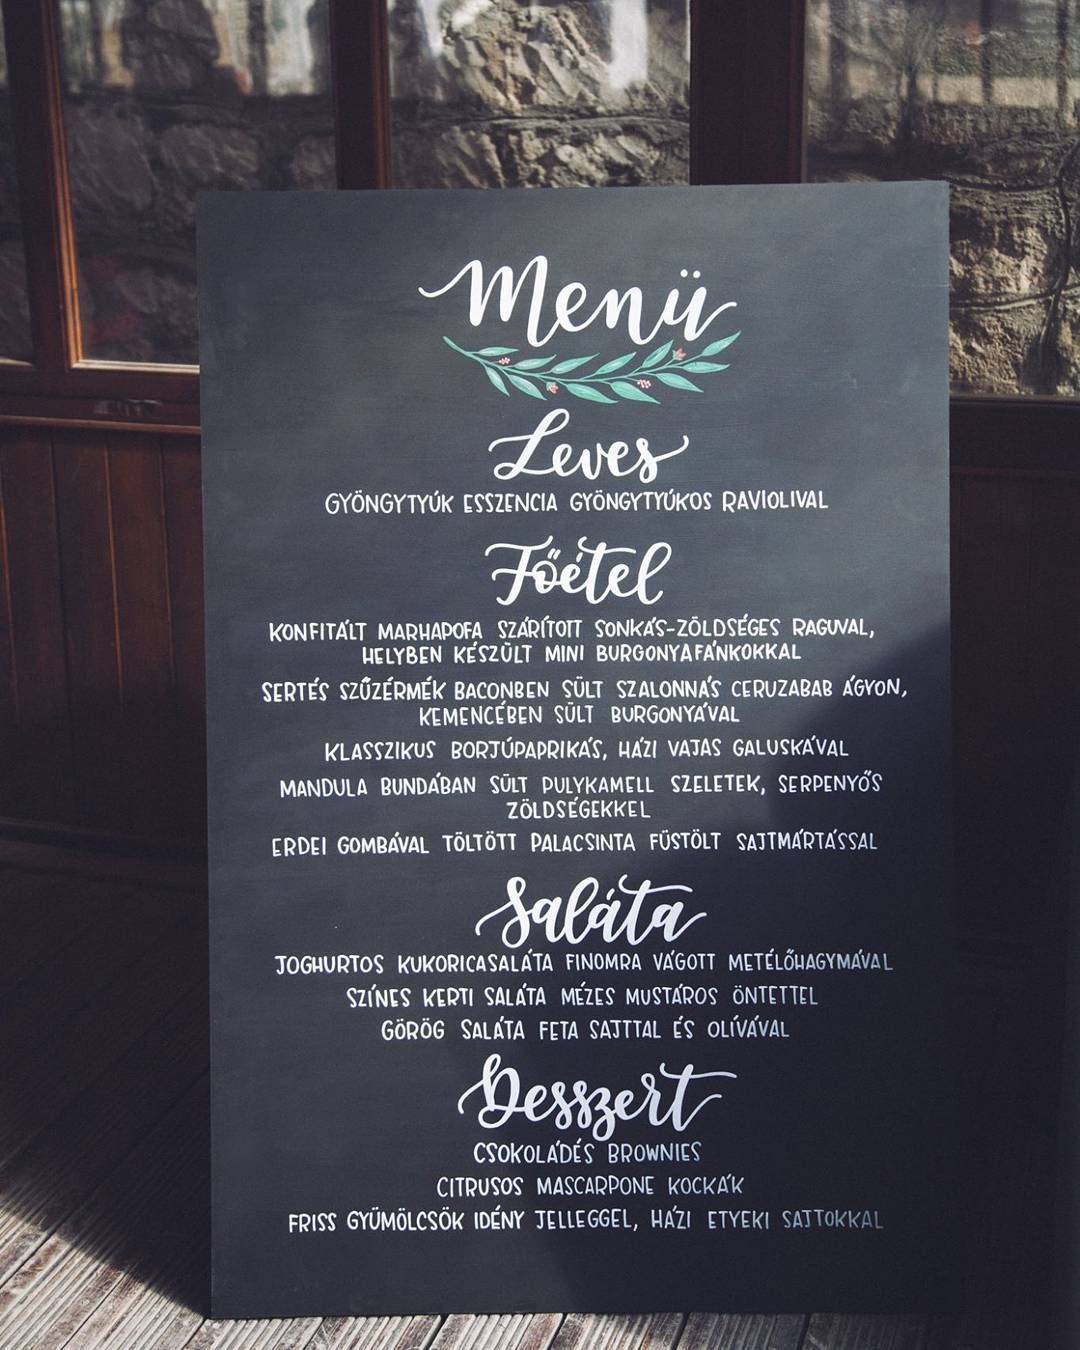 Menü
Leves
GYÖNGYTYÚK ESSZENCIA GYÖNGYTYÚKOS RAVIOLIVAL
Főétel
KONFITÁLT MARHAPOFA SZÁRÍTOTT SONKÁS-ZÖLDSÉGES RAGUVAL,
HELYBEN KÉSZÜLT MINI BURGONYAFÁNKOKKAL
SERTÉS SZŰZÉRMÉK BACONBEN SÜLT SZALONNÁS CERUZABAB ÁGYON,
KEMENCÉBEN SÜLT BURGONYÁVAL
KLASSZIKUS BORJÚPAPRIKÁS, HÁZI VAJAS GALUSKÁVAL
MANDULA BUNDÁBAN SÜLT PULYKAMELL SZELETEK, SERPENYŐS
ZÖLDSÉGEKKEL
ERDEI GOMBÁVAL TÖLTÖTT PALACSINTA FÜSTÖLT SAJTMÁRTÁSSAL
Saláta
JOGHURTOS KUKORICASALÁTA FINOMRA VÁGOTT METÉLŐHAGYMÁVAL
SZÍNES KERTI SALÁTA MÉZES MUSTÁROS ÖNTETTEL
GÖRÖG SALÁTA FETA SAJTTAL ÉS OLÍVÁVAL
Desszert
CSOKOLÁDÉS BROWNIES
CITRUSOS MASCARPONE KOCKÁK
FRISS GYÜMÖLCSÖK IDÉNY JELLEGGEL, HÁZI ETYEKI SAJTOKKAL